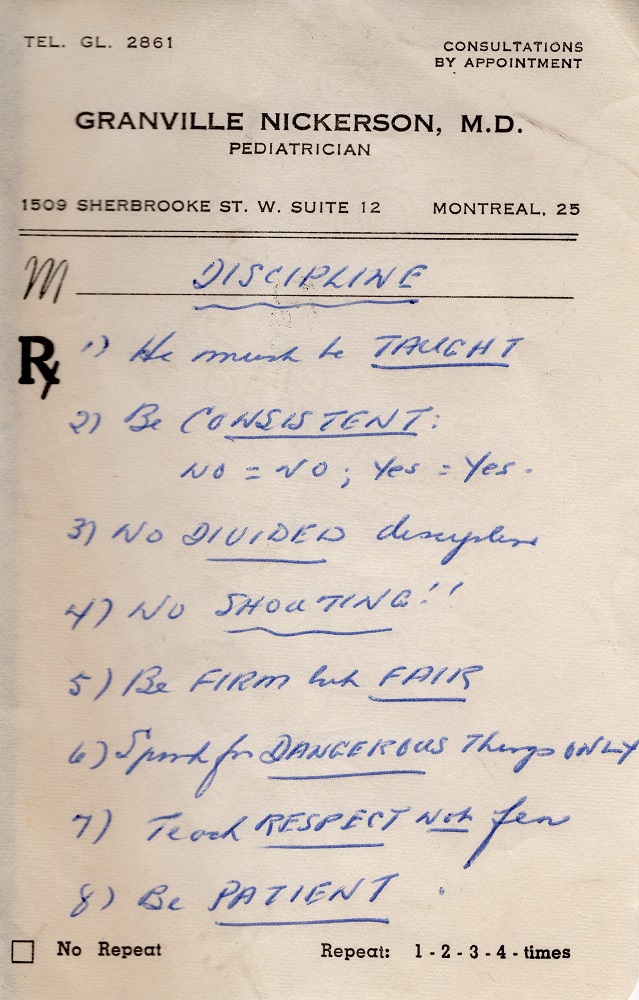 TEL. GL. 2861
CONSULTATIONS
BY APPOINTMENT
GRANVILLE NICKERSON, M.D.
PEDIATRICIAN
1509 SHERBROOKE ST. W. SUITE 12 MONTREAL, 25
M DISCIPLINE
Rx 1) He must be TAUGHT
2) Be CONSISTENT:
NO = NO; Yes = Yes.
3) NO DIVIDED discipline
4) NO SHOUTING!!
5) Be FIRM but FAIR
6) Spank for DANGEROUS Things ONLY
7) Teach RESPECT not fear
8) Be PATIENT.
No Repeat Repeat: 1 - 2 - 3 - 4 - times